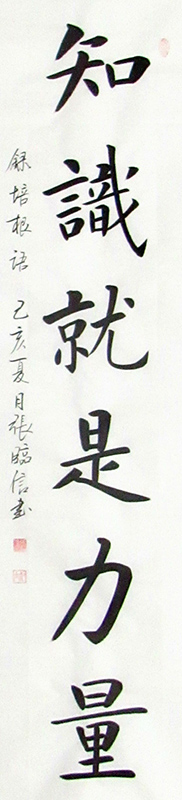 知識就是力量
錄培根語 己亥夏月張臨信書